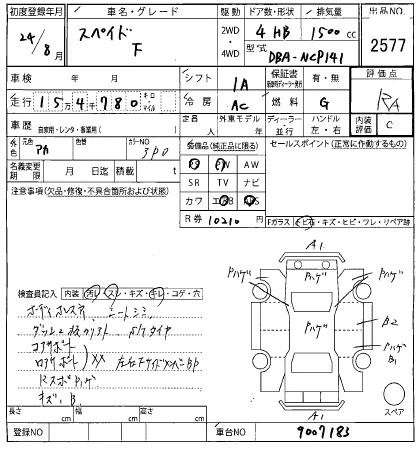 初度登録年月 車名・グレード 駆動 ドア数・形状 排気量 出品NO.
24/8月 スペイド F 2WD・4WD 4 HB 1500cc 2577
型式 DBA-NCP141
車検 年 月 シフト 1A 保証書 有・無 評価点
走行 154780 キロ・マイル 冷房 AC 燃料 G RA
車歴 自家用・レンタ・事業用( ) 定員 人 外車モデル 年 ディーラー・並行 ハンドル 左・右 内装評価 C
外色 元色 アカ 色替 カラーNO 3P0 装備品(純正品に限る) セールスポイント(正常に作動するもの)
名義変更期限 月 日 迄 積載 t SR TV ナビ
注意事項(欠品・修復・不具合箇所および状態) カワ
R券 10210円 Fガラス キズ・ヒビ・ワレ・リペア跡
A1
検査員記入 内装 汚レ・スレ・キズ・キレ・コゲ・穴
シートシミ
S/Tタイヤ
コアサポート
XX
RスポPハゲ
キズ、B、
Pハゲ
Pハゲ
Pハゲ
Pハゲ
B2
Pハゲ B1
A1
スペア
長さ cm 幅 cm 高さ cm
登録NO 車台NO 9007183